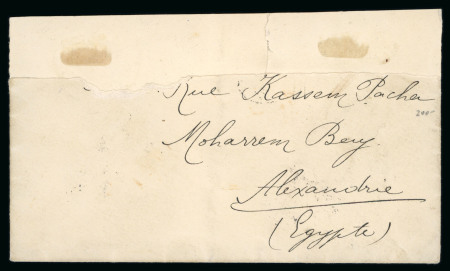 Rue Kassem Pacha
Moharrem Bey
Alexandrie
(Egypte)